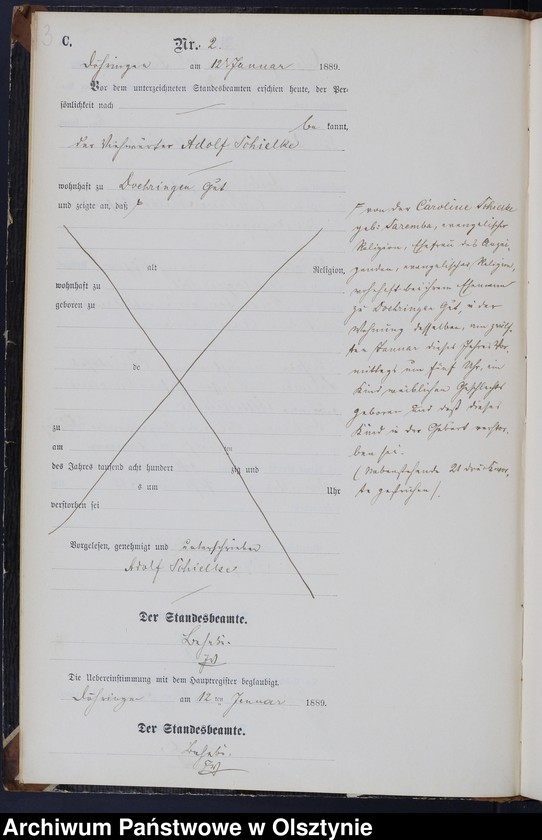 C.
Nr. 2.
Döhringen am 12ten Januar 1889.
Vor dem unterzeichneten Standesbeamten erschien heute, der Per-
sönlichkeit nach
be kannt,
der Viehwärter Adolf Schielke
wohnhaft zu Doehringen Gut
und zeigte an, daß
von der Caroline Schielke
geb: Saremba, evangelischer
Religion, Ehefrau des Anzei-
genden, evangelischer Religion,
wohnhaft bei ihrem Ehemann
zu Doehringen Gut, in der
Wohnung desselben, am zwölf-
ten Januar dieses Jahres Vor-
mittags um fünf Uhr, ein
Kind weiblichen Geschlechts
geboren und daß dieses
Kind in der Geburt verstor-
ben sei.
(Nebenstehende 21 Druckwor-
te gestrichen).
alt Religion,
wohnhaft zu
geboren zu
de
zu
am ten
des Jahres tausend acht hundert zig und
s um Uhr
verstorben sei
Vorgelesen, genehmigt und unterschrieben
Adolf Schielke
Der Standesbeamte.
Die Uebereinstimmung mit dem Hauptregister beglaubigt.
Döhringen am 12ten Januar 1889.
Der Standesbeamte.
Archiwum Państwowe w Olsztynie